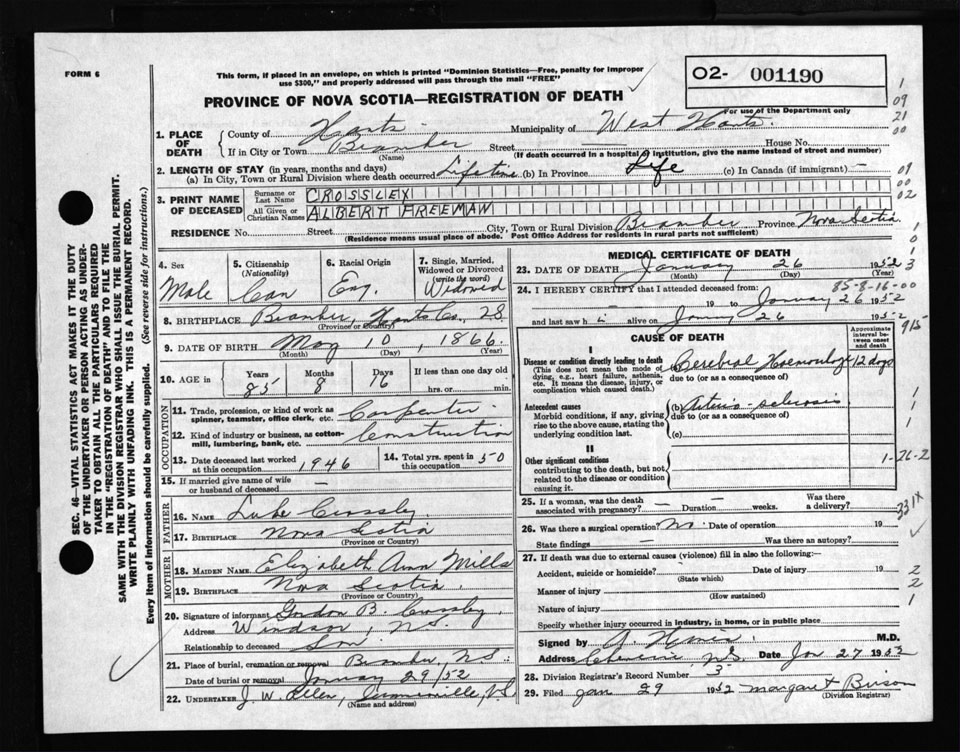 FORM 6
This form, if placed in an envelope, on which is printed "Dominion Statistics—Free, penalty for improper
use $300," and properly addressed will pass through the mail "FREE"
O2- 001190
For use of the Department only
PROVINCE OF NOVA SCOTIA—REGISTRATION OF DEATH
1. PLACE OF DEATH
County of Hants Municipality of West Hants.
If in City or Town Bramber Street House No.
(Name) (If death occurred in a hospital or institution, give the name instead of street and number)
2. LENGTH OF STAY (in years, months and days)
(a) In City, Town or Rural Division where death occurred Lifetime (b) In Province Life (c) In Canada (if immigrant) —
3. PRINT NAME OF DECEASED
Surname or Last Name CROSSLEY
All Given or Christian Names ALBERT FREEMAN
RESIDENCE No. Street City, Town or Rural Division Bramber Province Nova Scotia
(Residence means usual place of abode. Post Office Address for residents in rural parts not sufficient)
4. Sex
Male
5. Citizenship
(Nationality)
Can
6. Racial Origin
Eng.
7. Single, Married, Widowed or Divorced
(write the word)
Widowed
8. BIRTHPLACE Bramber, Hants Co., N.S.
(Province or Country)
9. DATE OF BIRTH May 10, 1866.
(Month) (Day) (Year)
10. AGE in Years Months Days If less than one day old
85 8 16 hrs. or min.
OCCUPATION
11. Trade, profession, or kind of work as spinner, teamster, office clerk, etc. Carpenter
12. Kind of industry or business, as cotton-mill, lumbering, bank, etc. Construction
13. Date deceased last worked at this occupation 1946
14. Total yrs. spent in this occupation 50
15. If married give name of wife or husband of deceased —
FATHER
16. NAME Luke Crossley
17. BIRTHPLACE Nova Scotia
(Province or Country)
MOTHER
18. MAIDEN NAME Elizabeth Ann Mills
19. BIRTHPLACE Nova Scotia.
(Province or Country)
20. Signature of informant Gordon B. Crossley.
Address Windsor, N.S.
Relationship to deceased Son.
21. Place of burial, cremation or removal Bramber, N.S.
Date of burial or removal January 29/52
22. UNDERTAKER J. W.
(Name and address)
MEDICAL CERTIFICATE OF DEATH
23. DATE OF DEATH January 26 1952
(Month) (Day) (Year)
85-8-16-00
24. I HEREBY CERTIFY that I attended deceased from:
19 to January 26 1952
and last saw h i alive on January 26 1952
CAUSE OF DEATH
Approximate interval between onset and death
I
Disease or condition directly leading to death
(This does not mean the mode of dying, e.g., heart failure, asthenia, etc. It means the disease, injury, or complication which caused death.)
(a) Cerebral Hemorrhage 12 days
due to (or as a consequence of)
Antecedent causes
Morbid conditions, if any, giving rise to the above cause, stating the underlying condition last.
(b) Arterio-sclerosis
due to (or as a consequence of)
(c)
II
Other significant conditions
contributing to the death, but not related to the disease or condition causing it.
1-26-2
25. If a woman, was the death associated with pregnancy? — Duration — weeks. Was there a delivery?
26. Was there a surgical operation? No. Date of operation 19
State findings — Was there an autopsy?
27. If death was due to external causes (violence) fill in also the following:—
Accident, suicide or homicide? Date of injury 19
(State which)
Manner of injury
(How sustained)
Nature of injury
Specify whether injury occurred in industry, in home, or in public place
Signed by M.D.
Address N.S. Date Jan 27 1952
28. Division Registrar's Record Number 3
29. Filed Jan 29 1952 Margaret
(Division Registrar)
SEC. 46—VITAL STATISTICS ACT MAKES IT THE DUTY
OF THE UNDERTAKER OR PERSON ACTING AS UNDER-
TAKER TO OBTAIN ALL THE PARTICULARS REQUIRED
IN THE "REGISTRATION OF DEATH" AND TO FILE THE
SAME WITH THE DIVISION REGISTRAR WHO SHALL ISSUE THE BURIAL PERMIT.
WRITE PLAINLY WITH UNFADING INK. THIS IS A PERMANENT RECORD.
Every item of Information should be carefully supplied. (See reverse side for instructions.)
1
09
21
00
09
00
02
1
0
1
3
915
1
1
1
331X
2
2
1